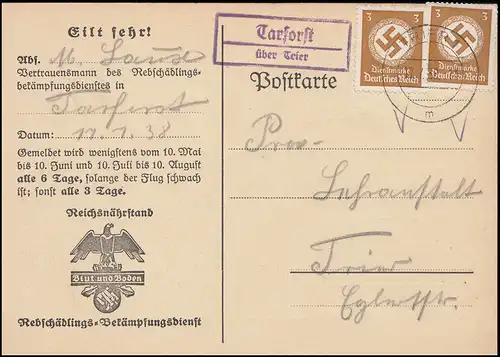 Eilt sehr!
Abs. M.
Vertrauensmann des Rebschädlings-
bekämpfungsdienstes in
Tarforst
Datum: 11.7.38
Gemeldet wird wenigstens vom 10. Mai
bis 10. Juni und 10. Juli bis 10. August
alle 6 Tage, solange der Flug schwach
ist; sonst alle 3 Tage.
Reichsnährstand
Blut und Boden
Rebschädlings=Bekämpfungsdienst
Tarforst
über Trier
Postkarte
3 3
Dienstmarke
Deutsches Reich
3 3
Dienstmarke
Deutsches Reich
m
Prov-
Lehranstalt
Trier